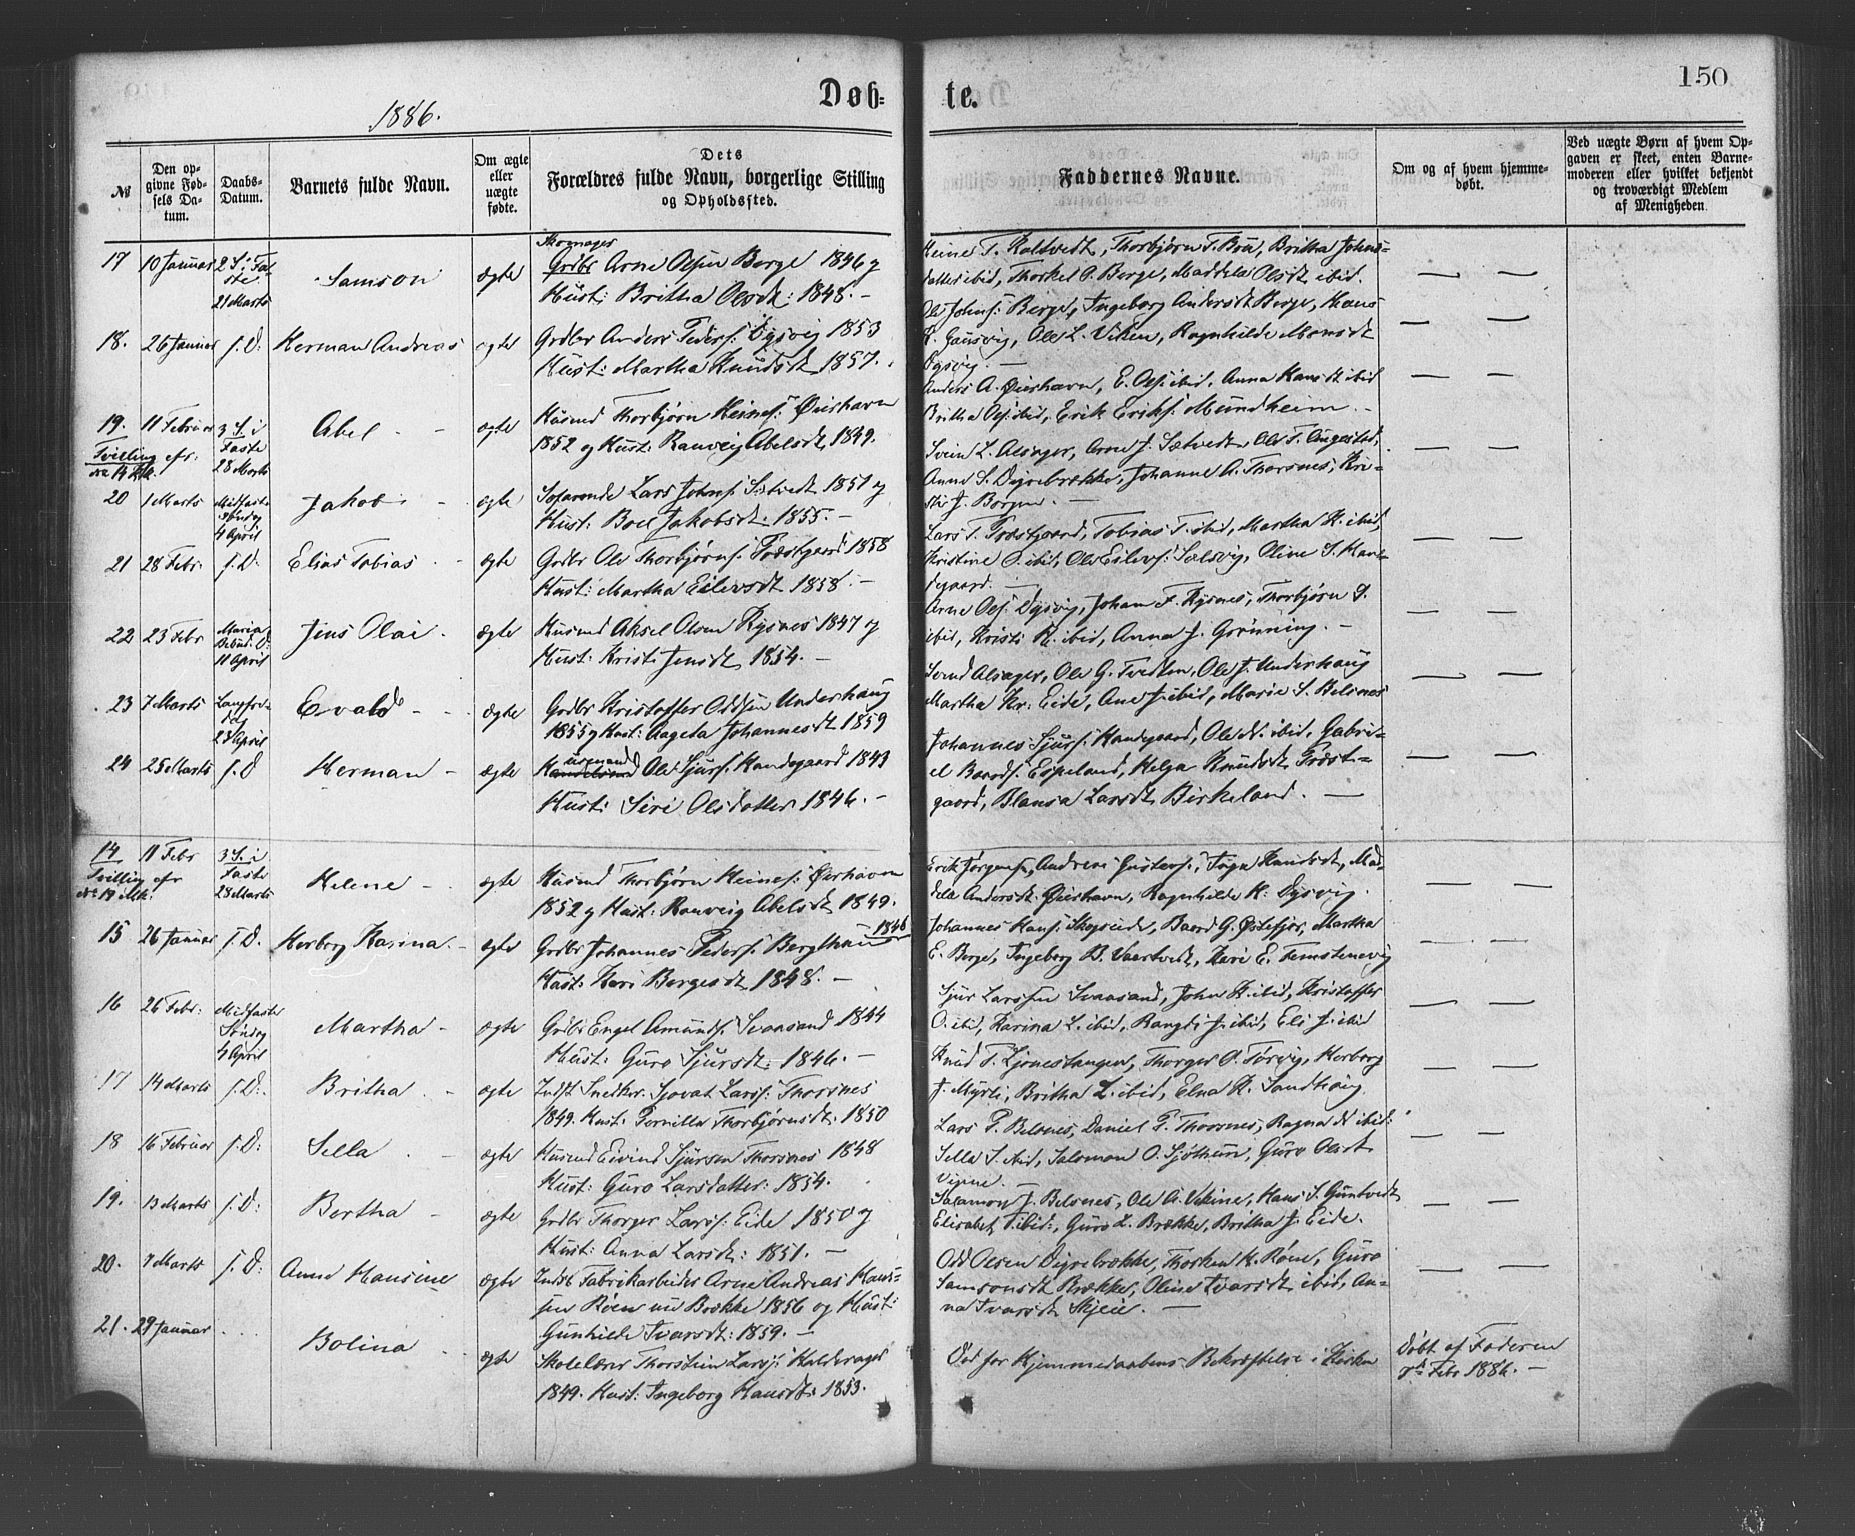 150
1886.
Døb= te.
№
Den op-
givne Fød-
sels Da-
tum.
Daabs-
Datum.
Barnets fulde Navn.
Om ægte
eller
uægte
fødte.
Dets
Forældres fulde Navn, borgerlige Stilling
og Opholdssted.
Faddernes Navne.
Om og af hvem hjemme-
døbt.
Ved uægte Børn af hvem Op-
gaven er skeet, enten Barne-
moderen eller hvilket bekjendt
og troværdigt Medlem
af Menigheden.
17 10 Januar 2 S. i Fa-
ste
21 Marts
Samson ægte
Skomager
Grdbr Arne Olsen Berge 1846 og
Hust: Britha Olsdt: 1848. —
Heine T. Kaltvedt, Thorbjørn T. Bru, Britha Johns-
datter ibid, Thorkel O. Berge, Maddela Olsdt ibid.
18. 26 Januar s. D: Herman Andreas ægte
Grdbr Anders Peders: Dysvig 1853
Hust: Martha Knudsdt 1857.
Ole Johns: Berge, Ingeborg Andersdt Berge, Hans
K. Gausvig, Ole L. Viken, Ragnhilde Monsdt
Dysvig. —
19. 11 Februar 3 S. i
Faste
28 Marts
Tvilling efr.
No 14 Kk.
Abel - - ægte
Husmd Thorbjørn Heines: Øierhavn
1852 og Hust: Ranveig Abelsdt, 1849.
Anders A. Øierhavn, E. Ols: ibid, Anna Hansdt ibid
Britha Ols: ibid, Erik Eriks: Mundheim. —
20 1 Marts Midfaste
Søndag
4 April
Jakob - ægte
Søfarende Lars Johns: Sætvedt 1851 og
Hust: Boel Jakobsdt: 1855. —
Svein L. Alsager, Arne J. Sætvedt, Ole T. Augestad,
Anne S. Dyrebrække, Johanne A. Thorsnes, Kri-
sti J. Borgen. —
21 28 Febr. s. D. Elias Tobias - ægte
Grdbr Ole Thorbjørns: Præstgaard 1858
Hust: Martha Eilevsdt 1858. —
Lars T. Præstgaard, Tobias T. ibid, Martha K. ibid,
Kristine O. ibid, Ole Eilevs: Salsvig, Oline S. Han-
degaard. —
22 23 Febr Maria
Bebud. D:
11 April
Jens Olai. ægte
Husmd Aksel Olsen Rysnes 1847 og
Hust: Kristi Jensdt 1854. —
Arne Ols: Dysvig, Johan F. Rysnes, Thorbjørn S.
ibid, Kristi K. ibid, Anna J. Grønning. —
23 7 Marts Langfre-
dag
23 April
Evald - - ægte
Grdbr Kristoffer Oddsen Underhaug
1855 og Hust: Aageta Johannesdt 1859
Svend Alsager, Ole G. Tvedten, Ole J. Underhaug
Martha Kr: Eide, Ane J. ibid, Marie S. Belsnes
24 25 Marts s. D Herman - ægte
Husmand Ole Sjurs: Handegaard 1843
Hust: Siri Olsdatter 1846. —
Johannes Sjurs: Handegaard, Ole N. ibid, Gabri-
el Baards: Espeland, Helga Knudsdt Præst-
gaard, Blansa Larsdt, Birkeland. —
14 11 Febr 3 S. i
Faste
28 Marts
Tvilling efr
No 19 Mk:
Helene - ægte
Husmd Thorbjørn Heines: Øierhavn
1852 og Hust: Ranveig Abelsdt 1849.
Erik Jørgens:, Andreas Gustavs:, Inga Knudsdt, Mad-
dela Andersdt Øierhavn, Ragnhilde H: Dysvig.
15 26 Januar s. D. Herborg Karina. ægte
Grdbr Johannes Peders: Bergthun 1846
Hust: Kari Børgesdt 1848. —
Johannes Hans: Skogseide, Baard G. Østefjor, Martha
E. Berge, Ingeborg B. Vaartvedt, Kari E. Femstenevig
16 26 Febr: Midfaste
Søndag
4 April
Martha - ægte
Grdbr Engel Amunds: Svaasand 1844
Hust: Guro Sjursdt: 1846. —
Sjur Larssen Svaasand, John K. ibid, Kristoffer
O. ibid, Karina L. ibid, Rangdi J. ibid, Eli J. ibid
17 14 Marts s. D:. Britha - ægte
Indst Snedker Sjovat Lars: Thorsnes
1849. Hust: Pernilla Thorbjørnsdt: 1850
Knud T. Ljonestangen, Thorger O. Tørvig, Herborg
J. Myrli, Britha L. ibid, Elna K. Sandhaug.
18 16 Februar s. D: Sella - ægte
Husmd Eivind Sjursen Thorsnes 1848
Hust: Guro Larsdatter: 1854.
Lars P. Belsnes, Daniel P. Thorsnes, Ragna N ibid:
Sella S. ibid, Salomon O. Sjøthun, Guro Olsdt
Vigne. —
19. 13 Marts s. D: Bertha - ægte
Grdbr Thorger Lars: Eide 1850 og
Hust: Anna Larsdt: 1851. —
Salamon J. Belsnes, Ole A. Vikine, Hans S. Guntvedt
Elisabet J. ibid:, Guro L. Brække, Britha J. Eide.
20. 7 Marts s. D: Anna Hansine ægte
Indst Fabrikarbeider Arne Andreas Hans-
sen Røen nu Brække 1856 og Hust:
Gunhilde Ivarsdt: 1859. —
Odd Olsen Dyrebrække, Thorken H. Røen, Guro
Samsonsdt Brække, Oline Ivarsdt ibid, An-
na Ivarsdt Skjeie. —
21. 29 Januar . . . Bolina ægte
Skolelærer Thorstein Lars: Haldorager
1849. Hust: Ingeborg Hansdt: 1853.
Ved for Hjemmedaabens Bekræftelse i Kirken
Døbt af Faderen
7de Febr 1886. —